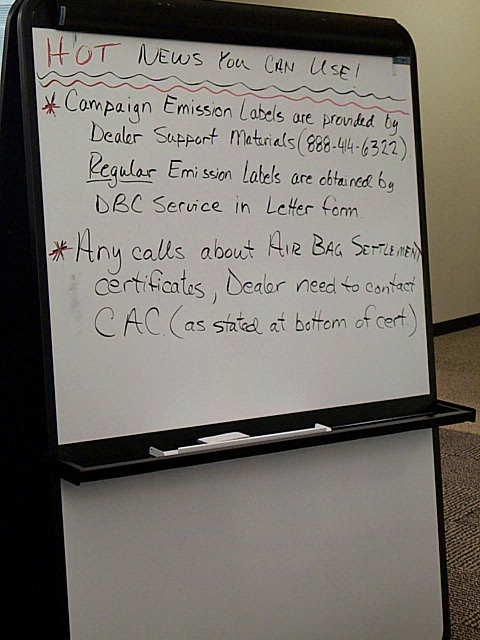 HOT NEWS YOU CAN USE!
* Campaign Emission Labels are provided by
Dealer Support Materials (888-414-6322)
Regular Emission Labels are obtained by
DBC Service in Letter form.
* Any calls about AIR BAG SETTLEMENT
certificates, Dealer need to contact
CAC. (as stated at bottom of cert.)